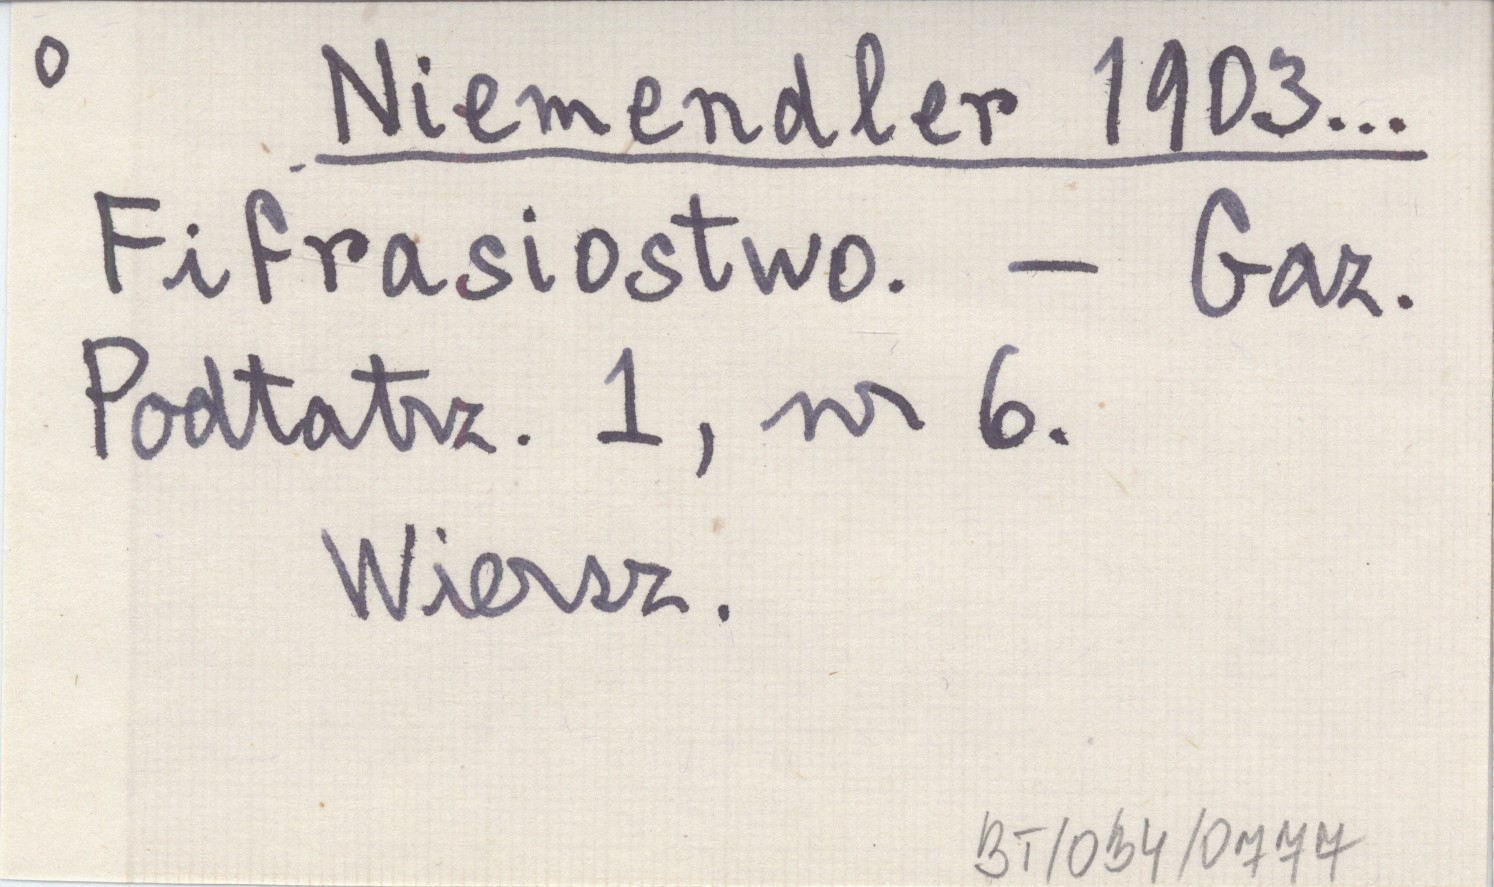 o Niemendler 1903...
Fifrasiostwo. – Gaz.
Podtatrz. 1, nr 6.
Wiersz.
BT/034/0777